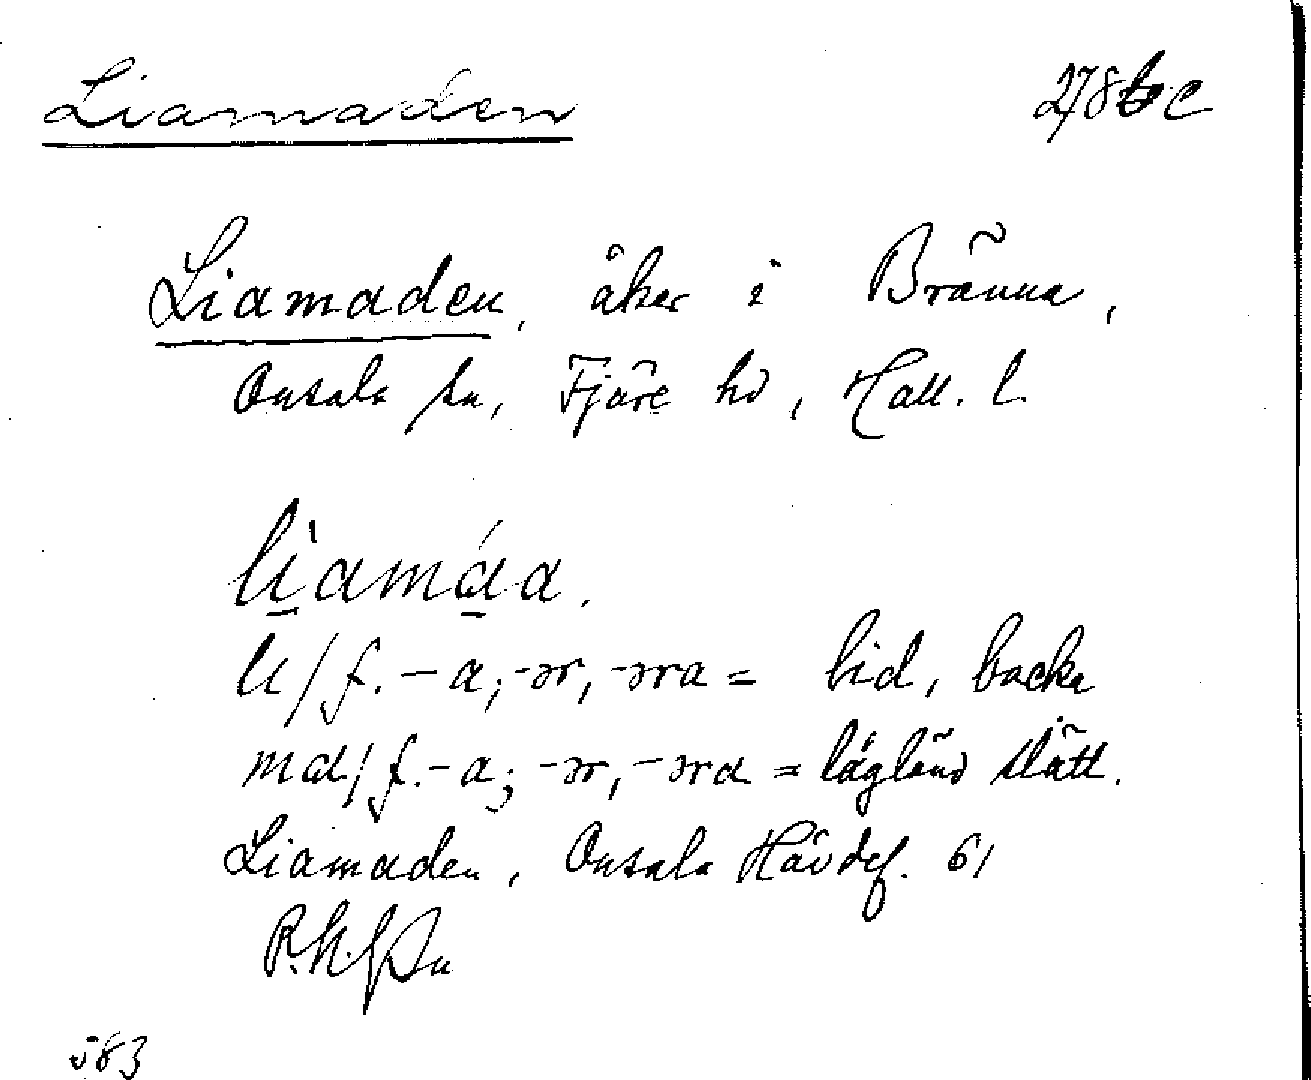 Liamaden
278 c
Liamaden, åker i Bränna,
Onsala sn, Fjäre hd, Hall. l.
lìamáa.
li/f. -a; -ər, -əra = lid, backe
ma/f. -a; -ər, -əra = lågländ slätt.
Liamaden, Onsala Hävdef. 61
583